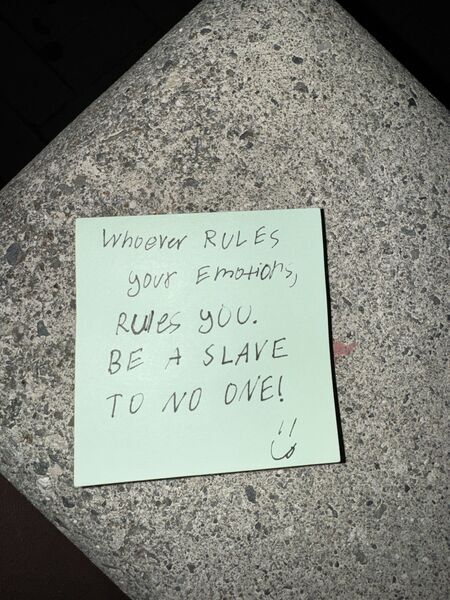 Whoever RULES
your Emotions,
Rules you.
BE A SLAVE
TO NO ONE!